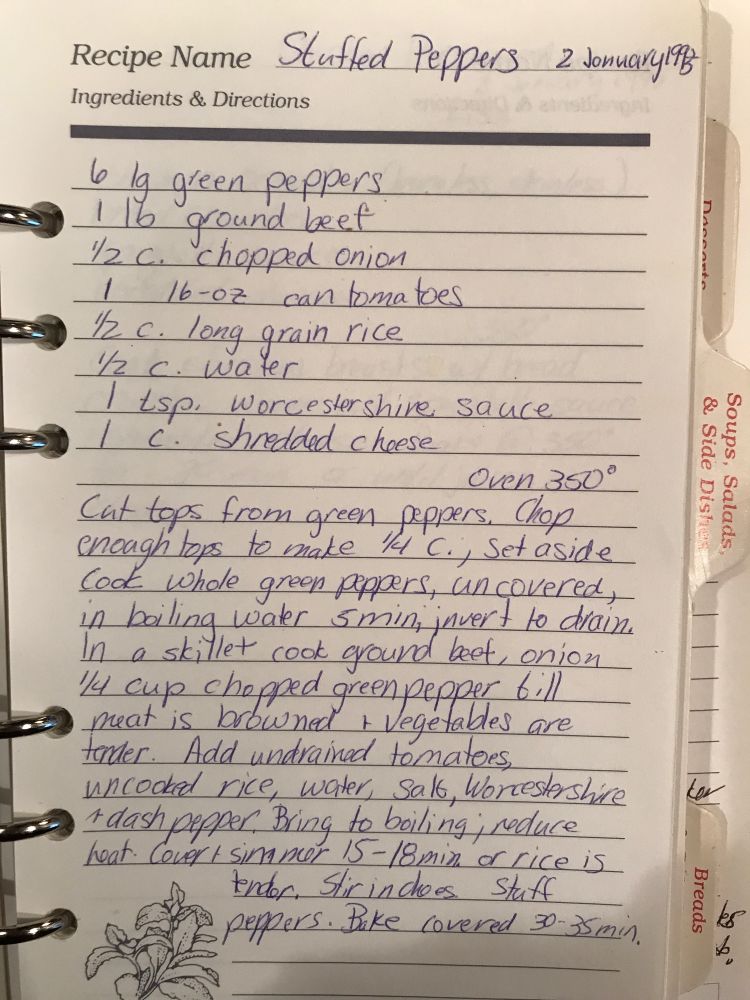 Recipe Name Stuffed Peppers 2 January
Ingredients & Directions
6 lg green peppers
1 lb ground beef
1/2 c. chopped onion
1 16-oz can tomatoes
1/2 c. long grain rice
1/2 c. water
1 tsp. worcestershire sauce
1 c. shredded cheese
Oven 350°
Cut tops from green peppers. Chop
enough tops to make 1/4 c., set aside
Cook whole green peppers, uncovered,
in boiling water 5 min; invert to drain.
In a skillet cook ground beef, onion
1/4 cup chopped green pepper till
meat is browned + vegetables are
tender. Add undrained tomatoes,
uncooked rice, water, salt, Worcestershire
+ dash pepper. Bring to boiling; reduce
heat. Cover + simmer 15-18 min. or rice is
tender. Stir in cheese. Stuff
peppers. Bake covered 30-35 min.
Desserts
Soups, Salads,
& Side Dishes
Breads